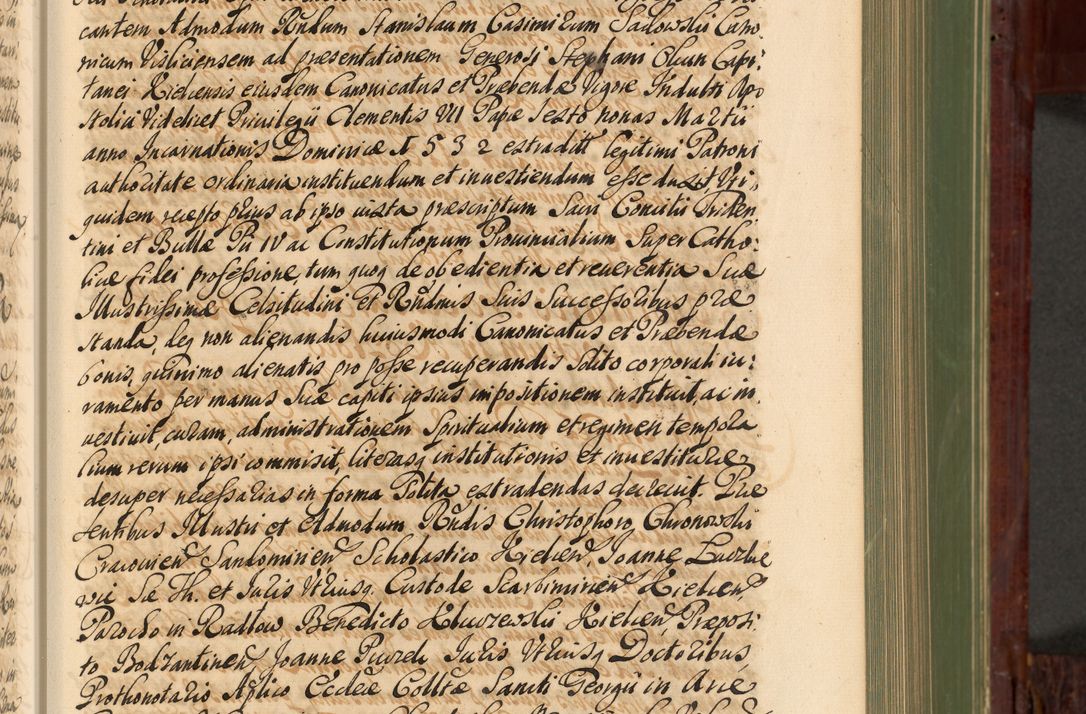 cantem Admodum Rndum Stanislaum Casimirum Sadowski Cano:
nicum Visliciensem ad præsentationem Generosi Stephani Capi:
tanei Kielcensis eiusdem Canonicatus et Præbendæ Vigore Indulti Apo
stolici Videlicet Privilegii Clementis VII Papæ Sexto nonas Martii
anno Incarnationis Dominicæ 1532 extraditi legitimi Patroni
authoritate ordinaria instituendum et investiendum esse duxit, Uti
quidem recepto prius ab ipso iuxta præscriptum Sacri Concilii Triden
tini et Bullæ Pii IV ac Constitutionum Provincialium Super Catho:
licæ fidei professione, tum quoq de obedientia et reverentia Suæ
Illustrissimæ Celsitudini et Rndmis Suis Successoribus præ
standa, deq non alienandis huiusmodi Canonicatus et Præbendæ
bonis, quinimo alienatis pro posse recuperandis solito corporali iu:
ramento per manus Suæ capiti ipsius impositionem instituit, ac in
vestivit, curam, administrationem Spiritualium et regimen tempora
lium rerum ipsi commisit, literasq institutionis et investituræ
desuper necessarias in forma Solita extradendas decrevit. Præ
sentibus Illustri et Admodum Rndis Christophoro Chronowski
Cracovien Sandomirien Scholastico Kielcen, Joanne
Sæ Th. et Juris Utriusq Custode Scarbimirien Kielcen
Parocho in Radłow Benedicto Kielcen, Præposi
to Bodzantinen, Joanne Juris Utriusq Doctoribus,
Prothonotario Aplico Ecclæ Colltæ Sancti Georgii in Arce